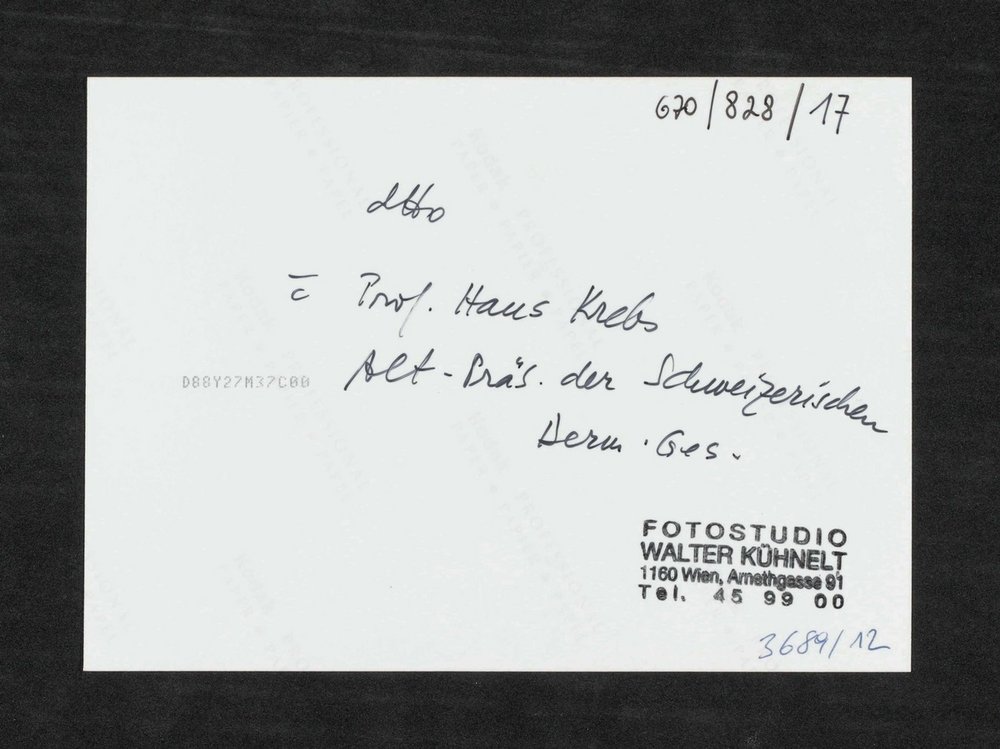 670/828/17
dtto
c̄ Prof. Haus Krebs
Alt-Präs. der Schweizerischen
Derm. Ges.
D88Y27M37C00
FOTOSTUDIO
WALTER KÜHNELT
1160 Wien, Arnethgasse 91
Tel. 45 99 00
3689/12